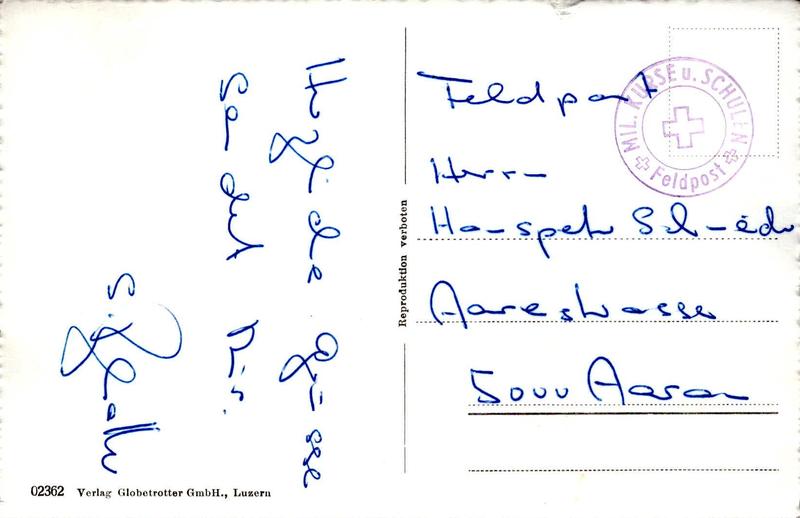 Herzliche Grüsse
sendet Dir
Feldpost
Herrn
Hanspeter Schmid
Aarestrasse
5000 Aarau
MIL. KURSE u. SCHULEN
Feldpost
Reproduktion verboten
02362 Verlag Globetrotter GmbH., Luzern